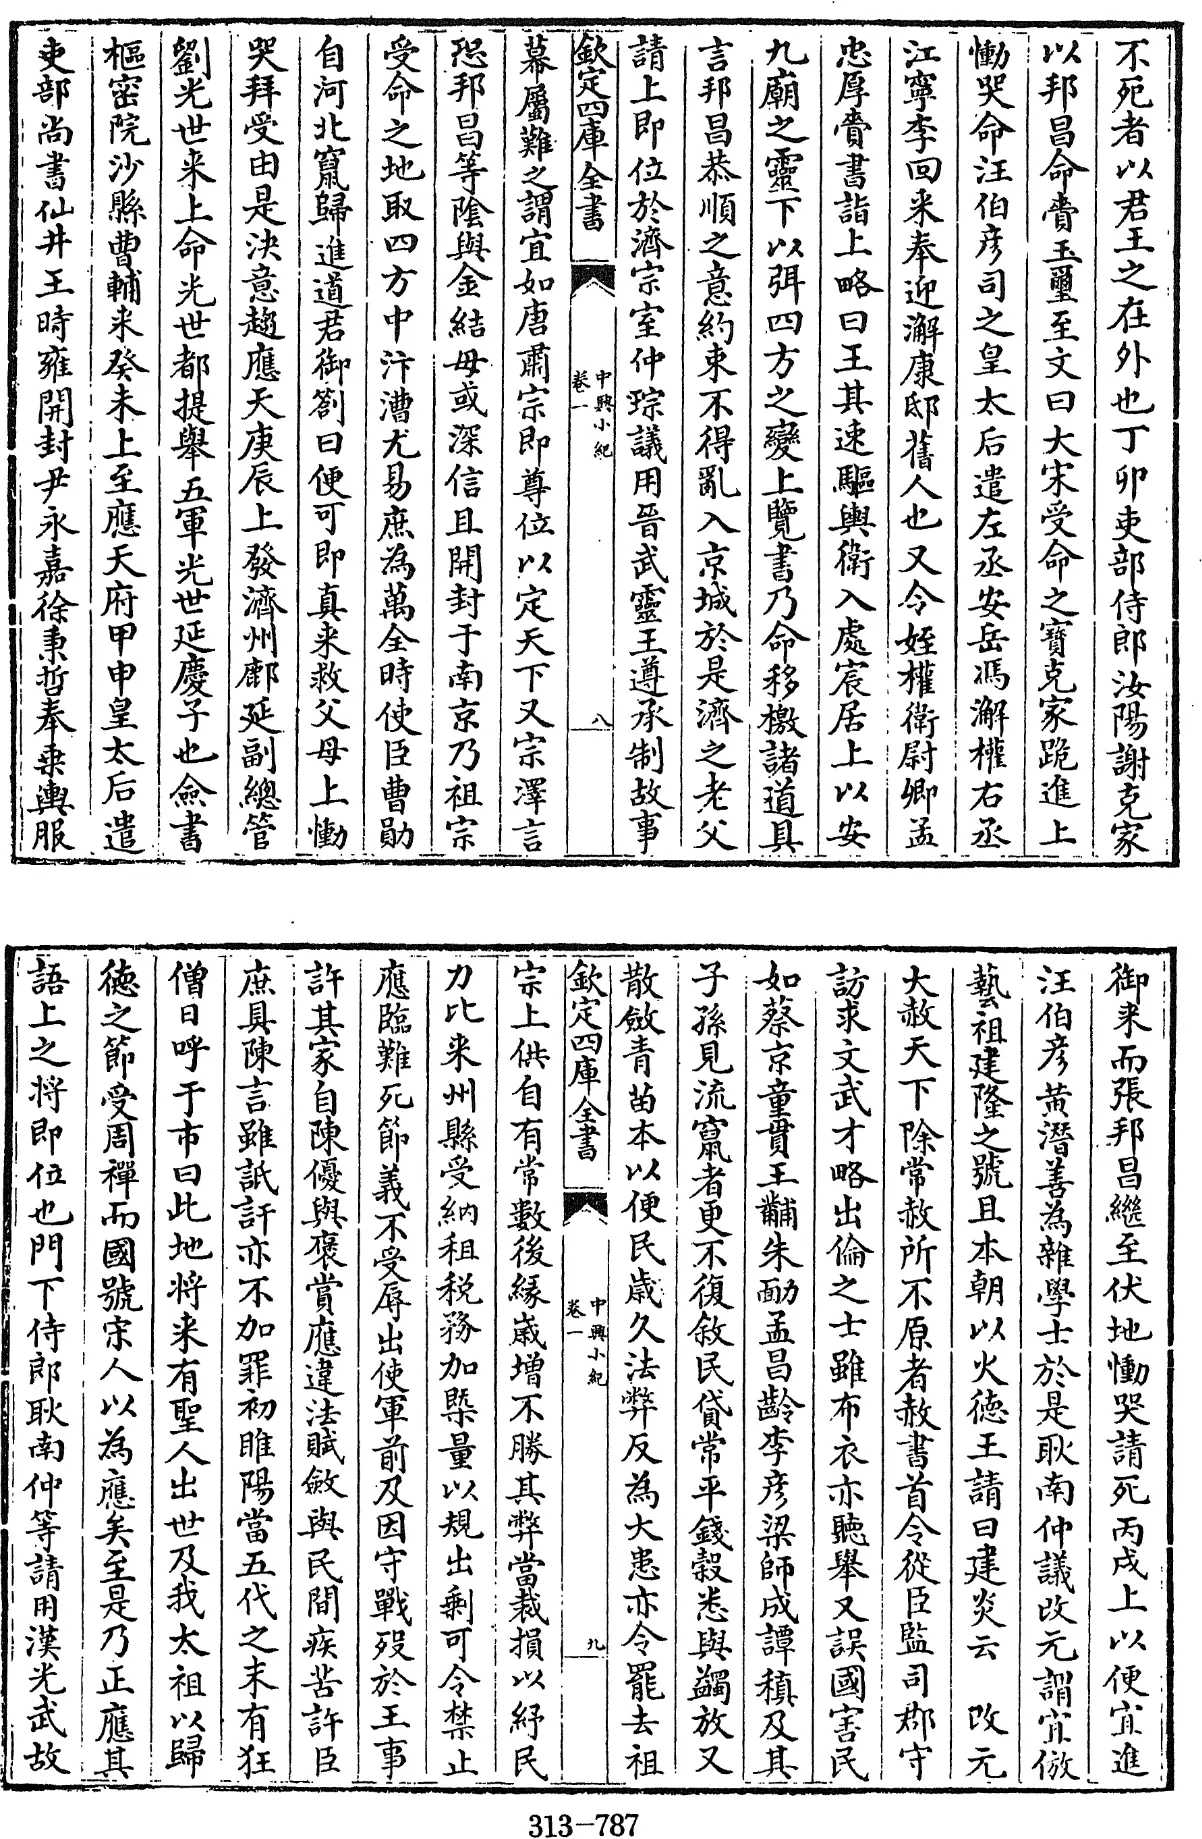 不死者以君王之在外也丁卯吏部侍郎汝陽謝克家
以邦昌命齎玉璽至文曰大宋受命之寶克家跪進上
慟哭命汪伯彦司之皇太后遣左丞安岳馮澥權右丞
江寧李回来奉迎澥康邸舊人也又令姪權衛尉卿孟
忠厚齎書詣上略曰王其速驅輿衛入處宸居上以安
九廟之靈下以弭四方之變上覽書乃命移檄諸道具
言邦昌恭順之意約束不得亂入京城於是濟之老父
請上即位於濟宗室仲琮議用晉武靈王遵承制故事
欽定四庫全書
中興小紀
卷一
八
幕屬難之謂宜如唐肅宗即尊位以定天下又宗澤言
恐邦昌等陰與金結毋或深信且開封于南京乃祖宗
受命之地取四方中汴漕尤易庶為萬全時使臣曹勛
自河北竄歸進道君御劄曰便可即真来救父母上慟
哭拜受由是決意趨應天庚辰上發濟州鄜延副總管
劉光世来上命光世都提舉五軍光世延慶子也僉書
樞密院沙縣曹輔来癸未上至應天府甲申皇太后遣
吏部尚書仙井王時雍開封尹永嘉徐秉哲奉乗輿服
御来而張邦昌繼至伏地慟哭請死丙戌上以便宜進
汪伯彦黄潛善為雜學士於是耿南仲議改元謂宜倣
藝祖建隆之號且本朝以火德王請曰建炎云 改元
大赦天下除常赦所不原者赦書首令從臣監司郡守
訪求文武才略出倫之士雖布衣亦聽舉又誤國害民
如蔡京童貫王黼朱勔孟昌齡李彦梁師成譚稹及其
子孫見流竄者更不復敘民貸常平錢穀悉與蠲放又
散斂青苗本以便民歳久法弊反為大患亦令罷去祖
欽定四庫全書
中興小紀
卷一
九
宗上供自有常數後縁歳增不勝其弊當裁損以紓民
力比来州縣受納租税務加槩量以規出剰可令禁止
應臨難死節義不受辱出使軍前及因守戰歿於王事
許其家自陳優與褒賞應違法賦斂與民間疾苦許臣
庶具陳言雖詆訐亦不加罪初睢陽當五代之末有狂
僧日呼于市曰此地将来有聖人出世及我太祖以歸
徳之節受周禪而國號宋人以為應矣至是乃正應其
語上之将即位也門下侍郎耿南仲等請用漢光武故
313-787